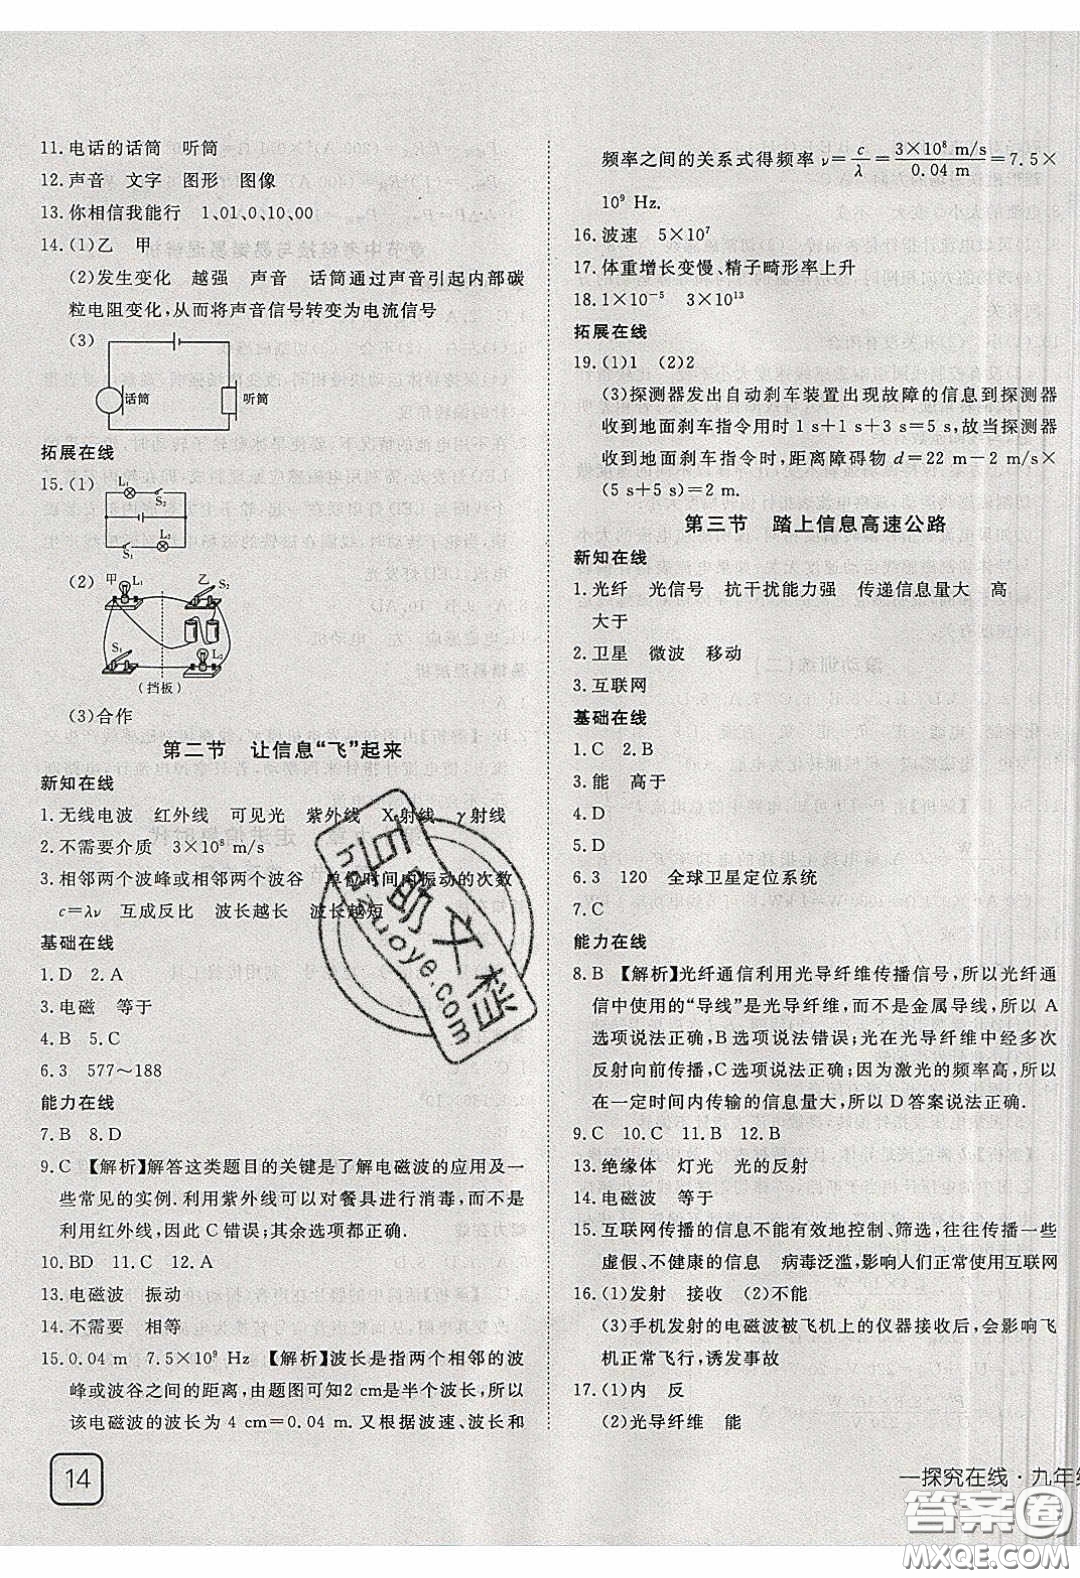 11. 电话的话筒　听筒
12. 声音　文字　图形　图像
13. 你相信我能行　1、01、0、10、00
14. (1)乙　甲
(2)发生变化　越强　声音　话筒通过声音引起内部碳
粒电阻变化,从而将声音信号转变为电流信号
(3)
话筒
听筒
拓展在线
15. (1)
L₁
S₂
S₁
L₂
(2)
甲
L₁
乙
S₂
S₁
L₂
(挡板)
(3)合作
第二节　让信息“飞”起来
新知在线
1. 无线电波　红外线　可见光　紫外线　X射线　γ射线
2. 不需要介质　3×10⁸ m/s
3. 相邻两个波峰或相邻两个波谷　单位时间内振动的次数
c=λν　互成反比　波长越长　波长越短
基础在线
1. D　2. A
3. 电磁　等于
4. B　5. C
6. 3　577～188
能力在线
7. B　8. D
9. C　【解析】解答这类题目的关键是了解电磁波的应用及一
些常见的实例. 利用紫外线可以对餐具进行消毒,而不是
利用红外线,因此 C 错误;其余选项都正确.
10. BD　11. C　12. A
13. 电磁波　振动
14. 不需要　相等
15. 0.04 m　7.5×10⁹ Hz　【解析】波长是指两个相邻的波
峰或波谷之间的距离,由题图可知2 cm是半个波长,所以
该电磁波的波长为 4 cm=0.04 m. 又根据波速、波长和
14
频率之间的关系式得频率 ν=c/λ=3×10⁸ m/s/0.04 m=7.5×
10⁹ Hz.
16. 波速　5×10⁷
17. 体重增长变慢、精子畸形率上升
18. 1×10⁻⁵　3×10¹³
拓展在线
19. (1)1　(2)2
(3)探测器发出自动刹车装置出现故障的信息到探测器
收到地面刹车指令用时 1 s+1 s+3 s=5 s,故当探测器
收到地面刹车指令时,距离障碍物 d=22 m-2 m/s×
(5 s+5 s)=2 m.
第三节　踏上信息高速公路
新知在线
1. 光纤　光信号　抗干扰能力强　传递信息量大　高
大于
2. 卫星　微波　移动
3. 互联网
基础在线
1. C　2. B
3. 能　高于
4. D
5. D
6. 3　120　全球卫星定位系统
7. C
能力在线
8. B　【解析】光纤通信利用光导纤维传播信号,所以光纤通
信中使用的“导线”是光导纤维,而不是金属导线,所以 A
选项说法正确,B 选项说法错误;光在光导纤维中经多次
反射向前传播,C 选项说法正确;因为激光的频率高,所
以在一定时间内传输的信息量大,所以 D 答案说法正确.
9. C　10. C　11. B　12. B
13. 绝缘体　灯光　光的反射
14. 电磁波　等于
15. 互联网传播的信息不能有效地控制、筛选,往往传播一些
虚假、不健康的信息　病毒泛滥,影响人们正常使用互联网
16. (1)发射　接收　(2)不能
(3)手机发射的电磁波被飞机上的仪器接收后,会影响飞
机正常飞行,诱发事故
17. (1)内　反
(2)光导纤维　能
—探究在线·九年级
答案圈
MXQE.COM
自助文档
hdzuoye.com